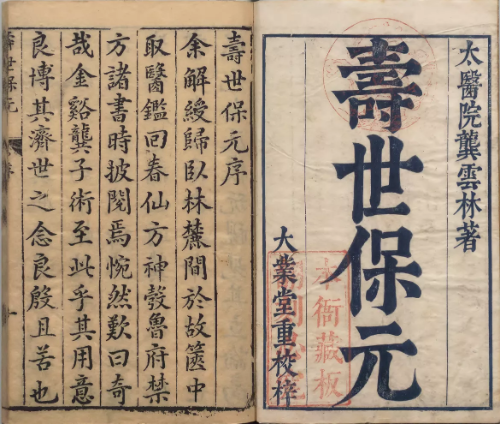 太醫院龔雲林著
壽世保元
大業堂重校梓
本衙藏板
壽世保元序
余解綬歸臥林麓間於故篋中
取醫鑑回春仙方神彀魯府禁
方諸書時披閱焉惋然歎曰奇
哉金谿龔子術至此乎其用意
良博其濟世之念良殷且苦也
壽世保元